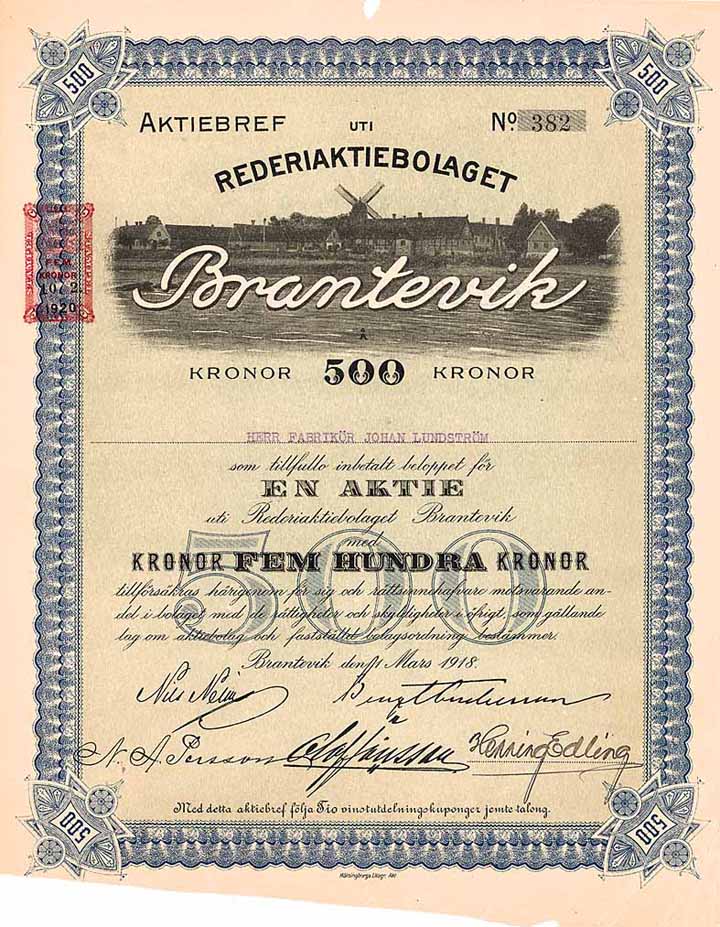 500
500
AKTIEBREF UTI No. 382
REDERIAKTIEBOLAGET
Brantevik
FEM
KRONOR
1920
Å
KRONOR 500 KRONOR
HERR FABRIKÖR JOHAN LUNDSTRÖM
som tillfullo inbetalt beloppet för
EN AKTIE
uti Rederiaktiebolaget Brantevik
med
KRONOR FEM HUNDRA KRONOR
500
tillförsäkras härigenom för sig och rättsinnehafvare motsvarande an-
del i bolaget med de rättigheter och skyldigheter i öfrigt, som gällande
lag om aktiebolag och fastställd bolagsordning bestämmer.
Brantevik den 1 Mars 1918.
N. A. Persson Olof Jönsson Henning Edling
Med detta aktiebref följa Tio vinstutdelningskuponger jemte talong.
500
500